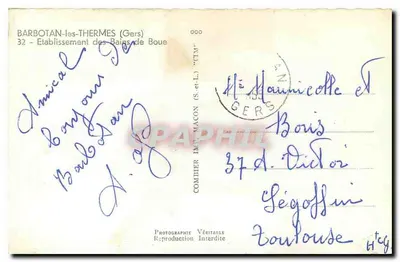 BARBOTAN-les-THERMES (Gers)
32 - Etablissement des Bains de Boue
Amical
bonjour de
Barbotan
COMBIER IMP. MACON (S.-et-L.) "CIM"
PHOTOGRAPHIE VÉRITABLE
Reproduction Interdite
GERS
et
Boris
37 A. Victor
Ségoffin
Toulouse
Hte G
SPAPHILL